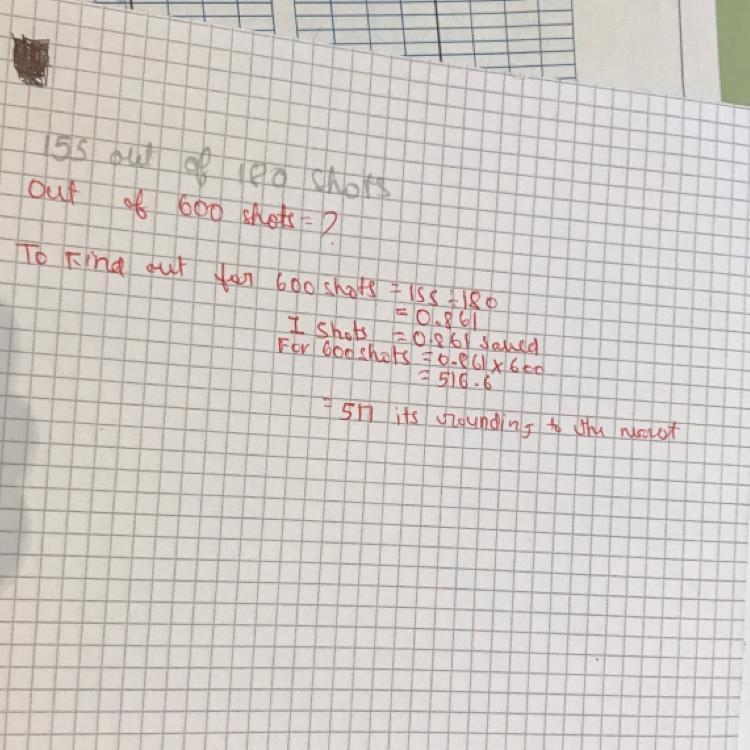 155 out of 180 shots
out of 600 shots = ?
To Find out for 600 shots = 155 ÷ 180
= 0.861
I shots = 0.861 saved
For 600 shots = 0.861 x 600
= 516.6
= 517 its rounding to the nearest